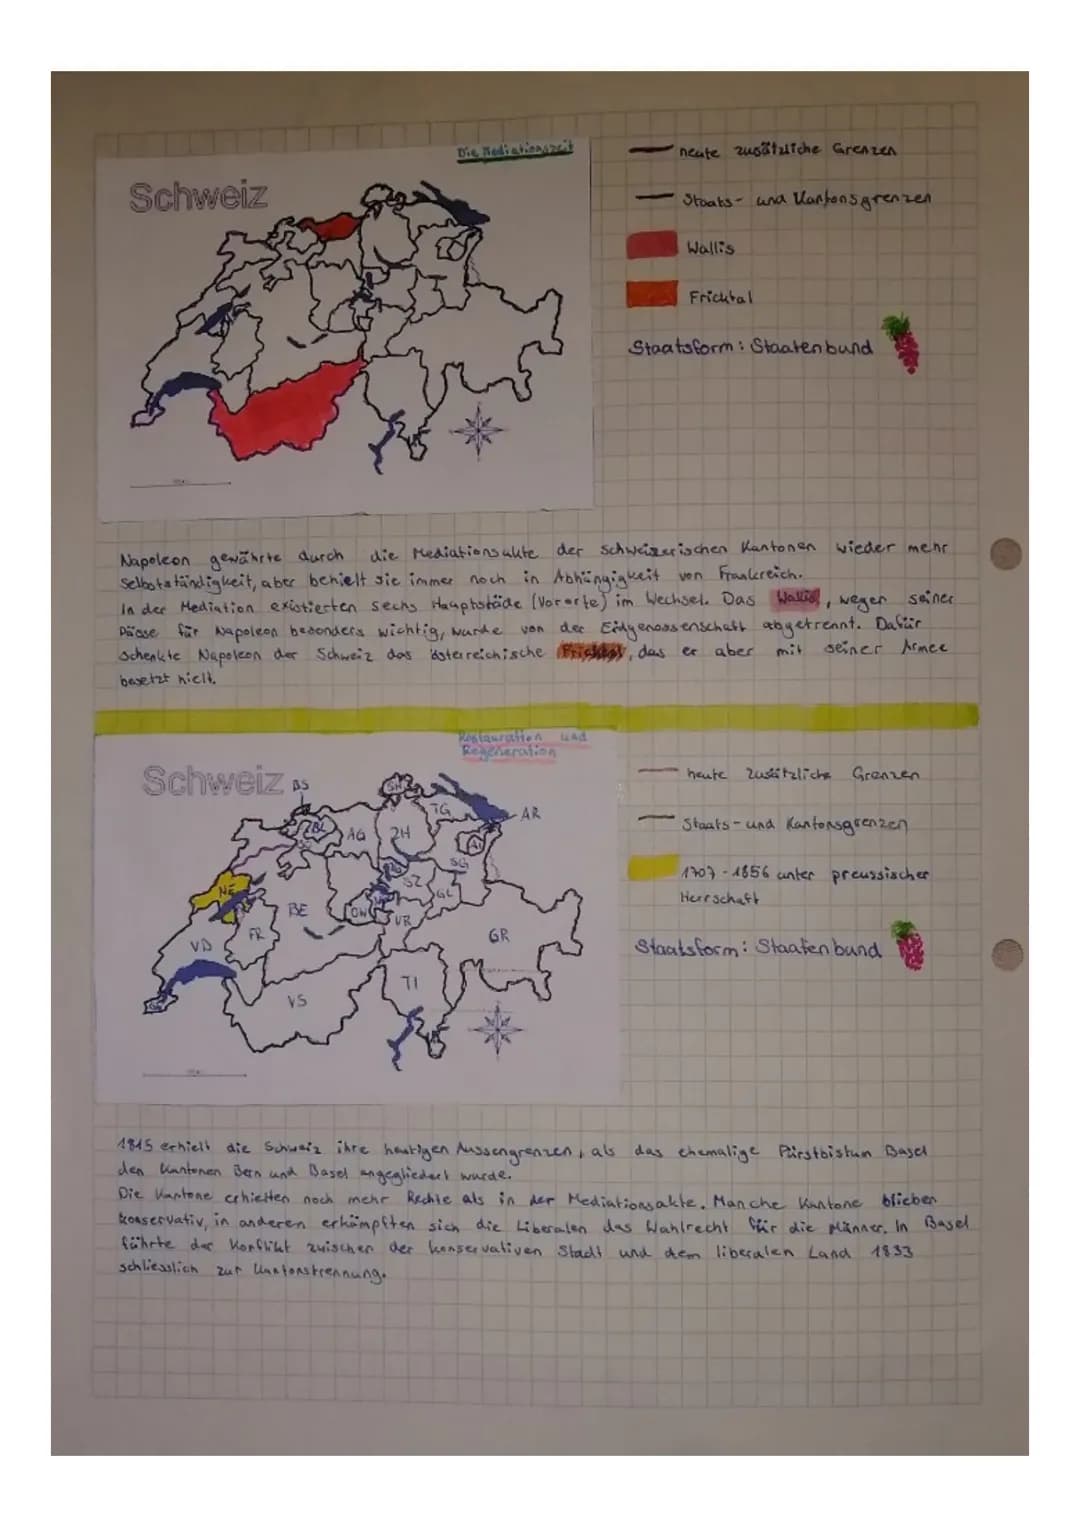 Die Mediationszeit
Schweiz
heute zusätzliche Grenzen
Staats- und Kantonsgrenzen
Wallis
Fricktal
Staatsform: Staatenbund
Napoleon gewährte durch die Mediationsakte der schweizerischen Kantonen wieder mehr
Selbstständigkeit, aber behielt sie immer noch in Abhängigkeit von Frankreich.
In der Mediation existierten sechs Hauptstäde (Vororte) im Wechsel. Das Wallis, wegen seiner
Pässe für Napoleon besonders wichtig, wurde von der Eidgenossenschaft abgetrennt. Dafür
schenkte Napoleon der Schweiz das österreichische Fricktal, das er aber mit seiner Armee
besetzt hielt.
Restauration und
Regeneration
Schweiz
BS
SH
TG
AR
BL
AG
ZH
AI
SG
NE
SZ
GL
BE
OW
UR
FR
VD
GR
TI
VS
heute zusätzliche Grenzen
Staats- und Kantonsgrenzen
1707 - 1856 unter preussischer
Herrschaft
Staatsform: Staatenbund
1815 erhielt die Schweiz ihre heutigen Aussengrenzen, als das ehemalige Fürstbistum Basel
den Kantonen Bern und Basel angegliedert wurde.
Die Kantone erhielten noch mehr Rechte als in der Mediationsakte. Manche Kantone blieben
konservativ, in anderen erkämpften sich die Liberalen das Wahlrecht für die Männer. In Basel
führte der Konflikt zwischen der konservativen Stadt und dem liberalen Land 1833
schliesslich zur Kantonstrennung.